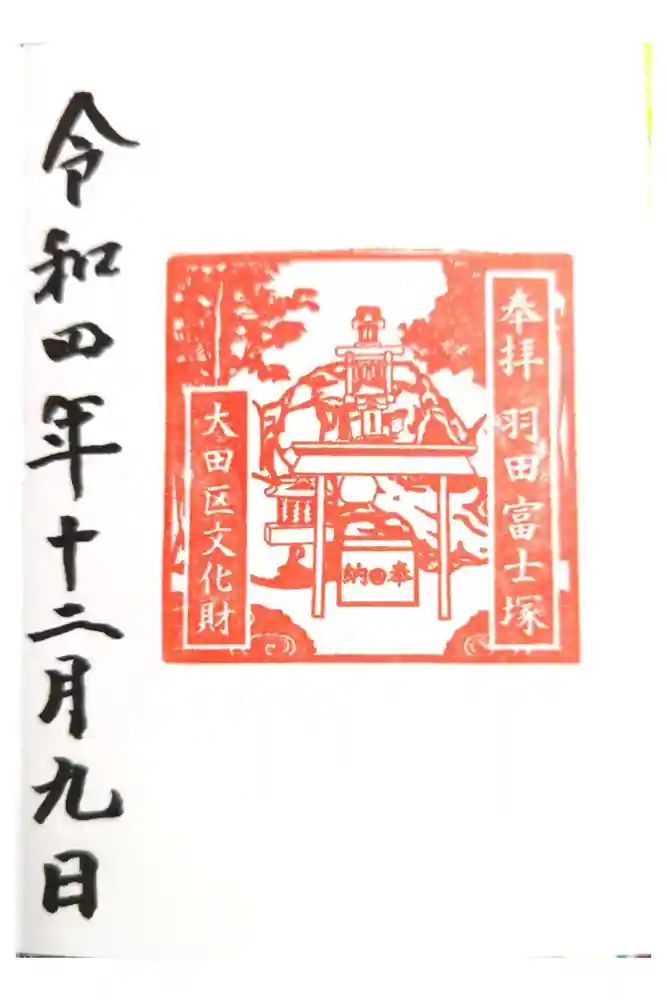 奉拝 羽田富士塚
大田区文化財
納 奉
令和四年十二月九日